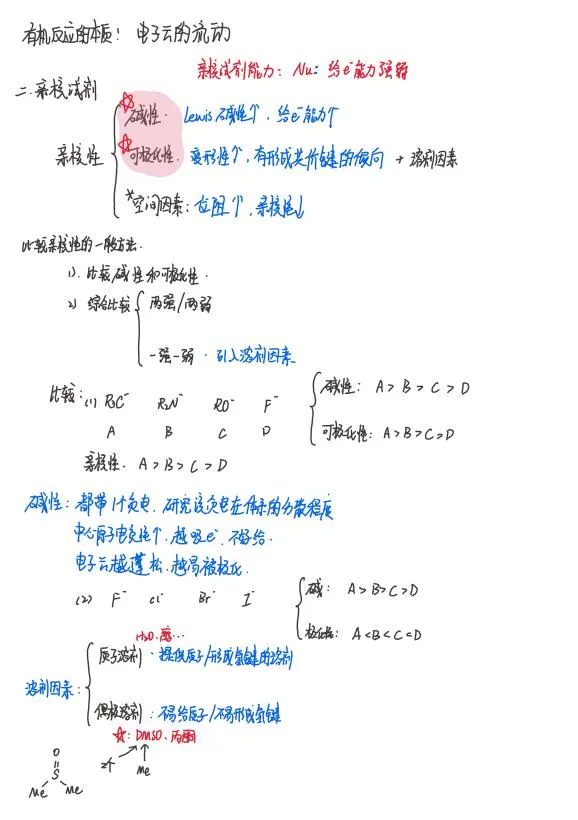 有机反应的本质: 电子云的流动
亲核试剂能力: Nu: 给e⁻能力强弱
二. 亲核试剂
亲核性
☆碱性. Lewis 碱性↑. 给e⁻能力↑
☆可极化性. 变形性↑, 有形成共价键的倾向 + 溶剂因素
*空间因素: 位阻↑, 亲核性↓
比较亲核性的一般方法.
1). 比较碱性和可极化性.
2) 综合比较 两强/两弱
一强一弱. 引入溶剂因素
比较: (1) R₃C⁻ R₂N⁻ RO⁻ F⁻
A B C D
碱性: A > B > C > D
可极化性: A > B > C > D
亲核性. A > B > C > D
碱性: 都带1个负电, 研究该负电在体系的分散程度
中心原子电负性↑, 越吸e⁻, 不好给.
电子云越蓬松, 越易被极化.
(2) F⁻ Cl⁻ Br⁻ I⁻
碱: A > B > C > D
极化性: A < B < C = D
溶剂因素:
H₂O. 醇...
质子溶剂. 提供质子/形成氢键的溶剂
偶极溶剂. 不易给质子/不易形成氢键
☆: DMSO、丙酮
2个 Me
O
S
Me Me